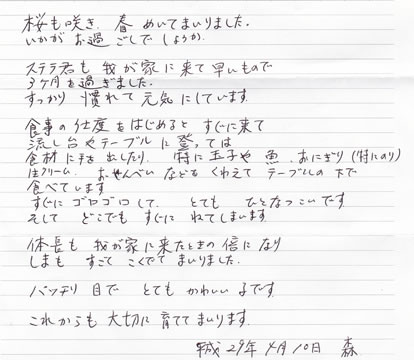 桜も咲き、春めいてまいりました。
いかがお過ごしでしょうか。
ステラ君も我が家に来て早いもので
3ヶ月を過ぎました。
すっかり慣れて元気にしています。
食事の仕度をはじめるとすぐに来て
流し台やテーブルに登っては
食材に手を出したり、特に玉子や魚、おにぎり(特にのり)
生クリーム、おせんべいなどもくわえてテーブルの下で
食べています
すぐにゴロゴロして、とてもひとなつこいです
そしてどこでもすぐにねてしまいます
体長も我が家に来たときの倍になり
しまもすごくこくでてまいりました。
バッチリ目でとてもかわいい子です
これからも大切に育ててまいります。
平成29年4月10日 森